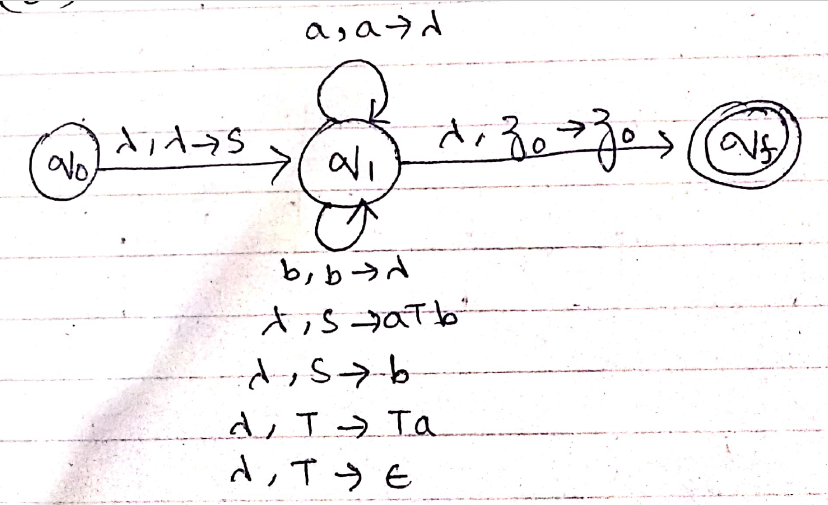 a, a → λ
q0 λ, λ → S q1 λ, z0 → z0 qf
b, b → λ
λ, S → aTb
λ, S → b
λ, T → Ta
λ, T → ε